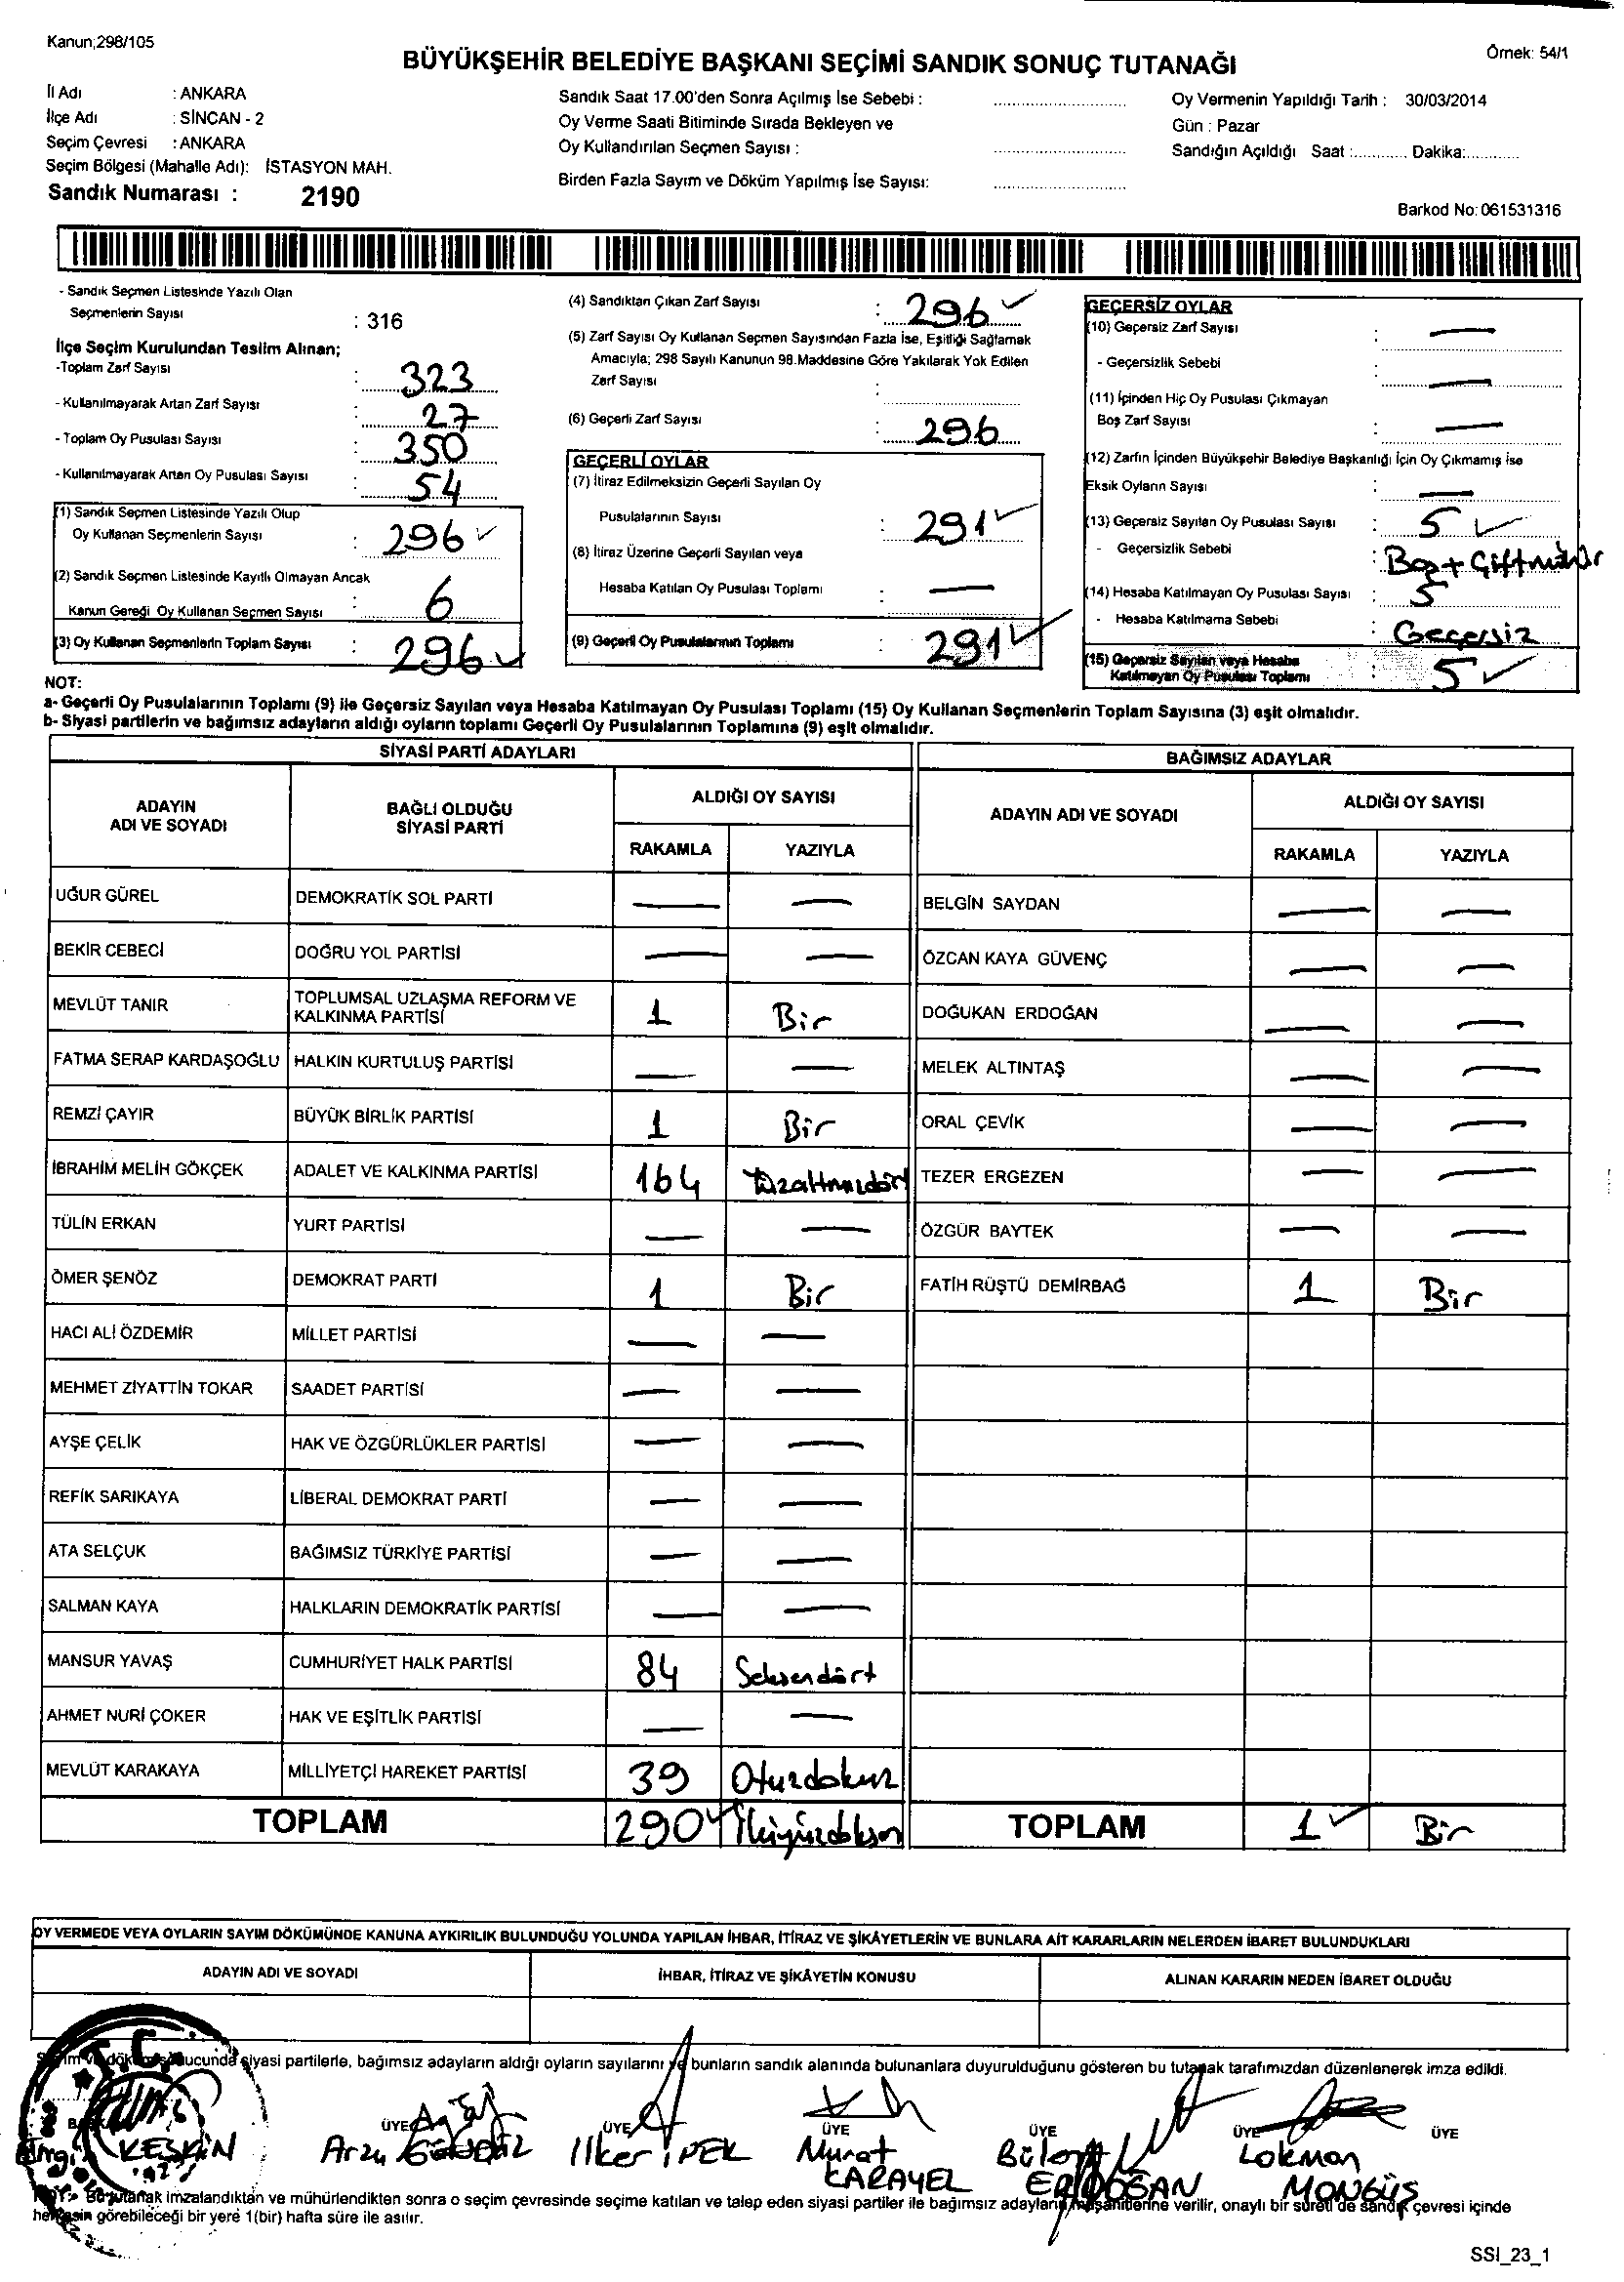 Kanun;298/105
Örnek: 54/1
BÜYÜKŞEHİR BELEDİYE BAŞKANI SEÇİMİ SANDIK SONUÇ TUTANAĞI
İl Adı : ANKARA
İlçe Adı : SİNCAN - 2
Seçim Çevresi : ANKARA
Seçim Bölgesi (Mahalle Adı): İSTASYON MAH.
Sandık Numarası : 2190
Sandık Saat 17.00'den Sonra Açılmış İse Sebebi :
Oy Verme Saati Bitiminde Sırada Bekleyen ve
Oy Kullandırılan Seçmen Sayısı :
Birden Fazla Sayım ve Döküm Yapılmış İse Sayısı:
Oy Vermenin Yapıldığı Tarih : 30/03/2014
Gün : Pazar
Sandığın Açıldığı Saat :............ Dakika:............
Barkod No: 061531316
- Sandık Seçmen Listesinde Yazılı Olan
Seçmenlerin Sayısı : 316
İlçe Seçim Kurulundan Teslim Alınan;
-Toplam Zarf Sayısı : 323
- Kullanılmayarak Artan Zarf Sayısı : 27
- Toplam Oy Pusulası Sayısı : 350
- Kullanılmayarak Artan Oy Pusulası Sayısı : 54
(1) Sandık Seçmen Listesinde Yazılı Olup
Oy Kullanan Seçmenlerin Sayısı : 296 ✓
(2) Sandık Seçmen Listesinde Kayıtlı Olmayan Ancak
Kanun Gereği Oy Kullanan Seçmen Sayısı : 6
(3) Oy Kullanan Seçmenlerin Toplam Sayısı : 296 ✓
(4) Sandıktan Çıkan Zarf Sayısı : 296 ✓
(5) Zarf Sayısı Oy Kullanan Seçmen Sayısından Fazla İse, Eşitliği Sağlamak
Amacıyla; 298 Sayılı Kanunun 98.Maddesine Göre Yakılarak Yok Edilen
Zarf Sayısı :
(6) Geçerli Zarf Sayısı : 296
GEÇERLİ OYLAR
(7) İtiraz Edilmeksizin Geçerli Sayılan Oy
Pusulalarının Sayısı : 291 ✓
(8) İtiraz Üzerine Geçerli Sayılan veya
Hesaba Katılan Oy Pusulası Toplamı : —
(9) Geçerli Oy Pusulalarının Toplamı : 291 ✓
GEÇERSİZ OYLAR
(10) Geçersiz Zarf Sayısı : —
- Geçersizlik Sebebi : —
(11) İçinden Hiç Oy Pusulası Çıkmayan
Boş Zarf Sayısı : —
(12) Zarfın İçinden Büyükşehir Belediye Başkanlığı İçin Oy Çıkmamış ise
Eksik Oyların Sayısı : —
(13) Geçersiz Sayılan Oy Pusulası Sayısı : 5 ✓
- Geçersizlik Sebebi : Boş + Çiftmühür
(14) Hesaba Katılmayan Oy Pusulası Sayısı : 5
- Hesaba Katılmama Sebebi : Geçersiz
(15) Geçersiz Sayılan veya Hesaba
Katılmayan Oy Pusulası Toplamı : 5 ✓
NOT:
a- Geçerli Oy Pusulalarının Toplamı (9) ile Geçersiz Sayılan veya Hesaba Katılmayan Oy Pusulası Toplamı (15) Oy Kullanan Seçmenlerin Toplam Sayısına (3) eşit olmalıdır.
b- Siyasi partilerin ve bağımsız adayların aldığı oyların toplamı Geçerli Oy Pusulalarının Toplamına (9) eşit olmalıdır.
SİYASİ PARTİ ADAYLARI
ADAYIN ADI VE SOYADI
BAĞLI OLDUĞU SİYASİ PARTİ
ALDIĞI OY SAYISI
RAKAMLA YAZIYLA
UĞUR GÜREL DEMOKRATİK SOL PARTİ — —
BEKİR CEBECİ DOĞRU YOL PARTİSİ — —
MEVLÜT TANIR TOPLUMSAL UZLAŞMA REFORM VE KALKINMA PARTİSİ 1 Bir
FATMA SERAP KARDAŞOĞLU HALKIN KURTULUŞ PARTİSİ — —
REMZİ ÇAYIR BÜYÜK BİRLİK PARTİSİ 1 Bir
İBRAHİM MELİH GÖKÇEK ADALET VE KALKINMA PARTİSİ 164
TÜLİN ERKAN YURT PARTİSİ — —
ÖMER ŞENÖZ DEMOKRAT PARTİ 1 Bir
HACI ALİ ÖZDEMİR MİLLET PARTİSİ — —
MEHMET ZİYATTİN TOKAR SAADET PARTİSİ — —
AYŞE ÇELİK HAK VE ÖZGÜRLÜKLER PARTİSİ — —
REFİK SARIKAYA LİBERAL DEMOKRAT PARTİ — —
ATA SELÇUK BAĞIMSIZ TÜRKİYE PARTİSİ — —
SALMAN KAYA HALKLARIN DEMOKRATİK PARTİSİ — —
MANSUR YAVAŞ CUMHURİYET HALK PARTİSİ 84 Seksendört
AHMET NURİ ÇOKER HAK VE EŞİTLİK PARTİSİ — —
MEVLÜT KARAKAYA MİLLİYETÇİ HAREKET PARTİSİ 39 Otuzdokuz
TOPLAM 290 ✓ İkiyüzdoksan
BAĞIMSIZ ADAYLAR
ADAYIN ADI VE SOYADI
ALDIĞI OY SAYISI
RAKAMLA YAZIYLA
BELGİN SAYDAN — —
ÖZCAN KAYA GÜVENÇ — —
DOĞUKAN ERDOĞAN — —
MELEK ALTINTAŞ — —
ORAL ÇEVİK — —
TEZER ERGEZEN — —
ÖZGÜR BAYTEK — —
FATİH RÜŞTÜ DEMİRBAĞ 1 Bir
TOPLAM 1 ✓ Bir
OY VERMEDE VEYA OYLARIN SAYIM DÖKÜMÜNDE KANUNA AYKIRILIK BULUNDUĞU YOLUNDA YAPILAN İHBAR, İTİRAZ VE ŞİKÂYETLERİN VE BUNLARA AİT KARARLARIN NELERDEN İBARET BULUNDUKLARI
ADAYIN ADI VE SOYADI
İHBAR, İTİRAZ VE ŞİKÂYETİN KONUSU
ALINAN KARARIN NEDEN İBARET OLDUĞU
siyasi partilerle, bağımsız adayların aldığı oyların sayılarını ve bunların sandık alanında bulunanlara duyurulduğunu gösteren bu tutanak tarafımızdan düzenlenerek imza edildi.
T.C.
ÜYE ÜYE ÜYE ÜYE ÜYE ÜYE
KESKİN
Arzu
İlker İPEK
Murat KARAYEL
Bülent ERDOĞAN
Lokman MONGÜŞ
Bu tutanak imzalandıktan ve mühürlendikten sonra o seçim çevresinde seçime katılan ve talep eden siyasi partiler ile bağımsız adayların müşahitlerine verilir, onaylı bir sureti de sandık çevresi içinde
herkesin görebileceği bir yere 1(bir) hafta süre ile asılır.
SSI_23_1